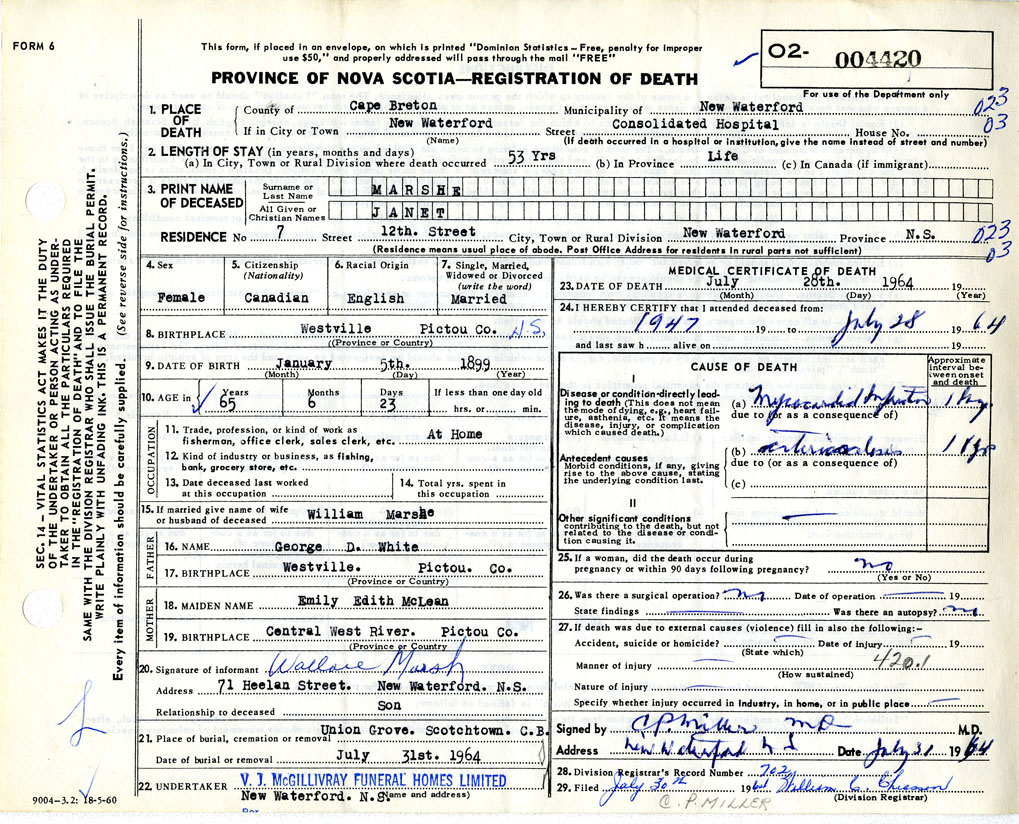 FORM 6
This form, if placed in an envelope, on which is printed "Dominion Statistics – Free, penalty for improper
use $50," and properly addressed will pass through the mail "FREE"
PROVINCE OF NOVA SCOTIA—REGISTRATION OF DEATH
02- 004420
For use of the Department only
023
03
1. PLACE OF DEATH { County of Cape Breton Municipality of New Waterford
If in City or Town New Waterford Street Consolidated Hospital House No.
(Name) (If death occurred in a hospital or institution, give the name instead of street and number)
2. LENGTH OF STAY (in years, months and days)
(a) In City, Town or Rural Division where death occurred 53 Yrs (b) In Province Life (c) In Canada (if immigrant)
3. PRINT NAME OF DECEASED
Surname or Last Name MARSHE
All Given or Christian Names JANET
RESIDENCE No 7 Street 12th. Street City, Town or Rural Division New Waterford Province N.S.
023
03
(Residence means usual place of abode. Post Office Address for residents in rural parts not sufficient)
SEC. 14 – VITAL STATISTICS ACT MAKES IT THE DUTY
OF THE UNDERTAKER OR PERSON ACTING AS UNDER-
TAKER TO OBTAIN ALL THE PARTICULARS REQUIRED
IN THE "REGISTRATION OF DEATH" AND TO FILE THE
SAME WITH THE DIVISION REGISTRAR WHO SHALL ISSUE THE BURIAL PERMIT.
WRITE PLAINLY WITH UNFADING INK. THIS IS A PERMANENT RECORD.
Every item of information should be carefully supplied. (See reverse side for instructions.)
4. Sex
Female
5. Citizenship
(Nationality)
Canadian
6. Racial Origin
English
7. Single, Married,
Widowed or Divorced
(write the word)
Married
8. BIRTHPLACE Westville Pictou Co. N.S.
((Province or Country)
9. DATE OF BIRTH January 5th. 1899
(Month) (Day) (Year)
10. AGE in Years Months Days If less than one day old
65 6 23 hrs. or min.
OCCUPATION
11. Trade, profession, or kind of work as
fisherman, office clerk, sales clerk, etc. At Home
12. Kind of industry or business, as fishing,
bank, grocery store, etc.
13. Date deceased last worked
at this occupation
14. Total yrs. spent in
this occupation
15. If married give name of wife
or husband of deceased William Marshe
FATHER
16. NAME George D. White
17. BIRTHPLACE Westville. Pictou. Co.
(Province or Country)
MOTHER
18. MAIDEN NAME Emily Edith McLean
19. BIRTHPLACE Central West River. Pictou Co.
(Province or Country)
20. Signature of informant Wallace Marsh
Address 71 Heelan Street. New Waterford. N.S.
Relationship to deceased Son
21. Place of burial, cremation or removal Union Grove. Scotchtown. C.B.
Date of burial or removal July 31st. 1964
22. UNDERTAKER V. J. McGILLIVRAY FUNERAL HOMES LIMITED
New Waterford. N.S. (Name and address)
Per
9004-3.2: 18-5-60
MEDICAL CERTIFICATE OF DEATH
23. DATE OF DEATH July 28th. 1964 19
(Month) (Day) (Year)
24. I HEREBY CERTIFY that I attended deceased from:
1947 19 to July 28 19 64
and last saw h alive on 19
CAUSE OF DEATH
Approximate
interval be-
tween onset
and death
I
Disease or condition directly lead-
ing to death (This does not mean
the mode of dying, e.g., heart fail-
ure, asthenia, etc. It means the
disease, injury, or complication
which caused death.)
(a) Myocardial 1
due to (or as a consequence of)
(b) 1 yr
due to (or as a consequence of)
(c)
Antecedent causes
Morbid conditions, if any, giving
rise to the above cause, stating
the underlying condition last.
II
Other significant conditions
contributing to the death, but not
related to the disease or condi-
tion causing it.
25. If a woman, did the death occur during
pregnancy or within 90 days following pregnancy? no
(Yes or No)
26. Was there a surgical operation? no Date of operation 19
State findings Was there an autopsy? no
27. If death was due to external causes (violence) fill in also the following:–
Accident, suicide or homicide? Date of injury 19
(State which) 420.1
Manner of injury
(How sustained)
Nature of injury
Specify whether injury occurred in industry, in home, or in public place
Signed by C.P. Miller MD M.D.
Address New Waterford N S Date July 31 19 64
28. Division Registrar's Record Number 702
29. Filed July 30th 1964 William C. Chiasson
(Division Registrar)
C. P. MILLER